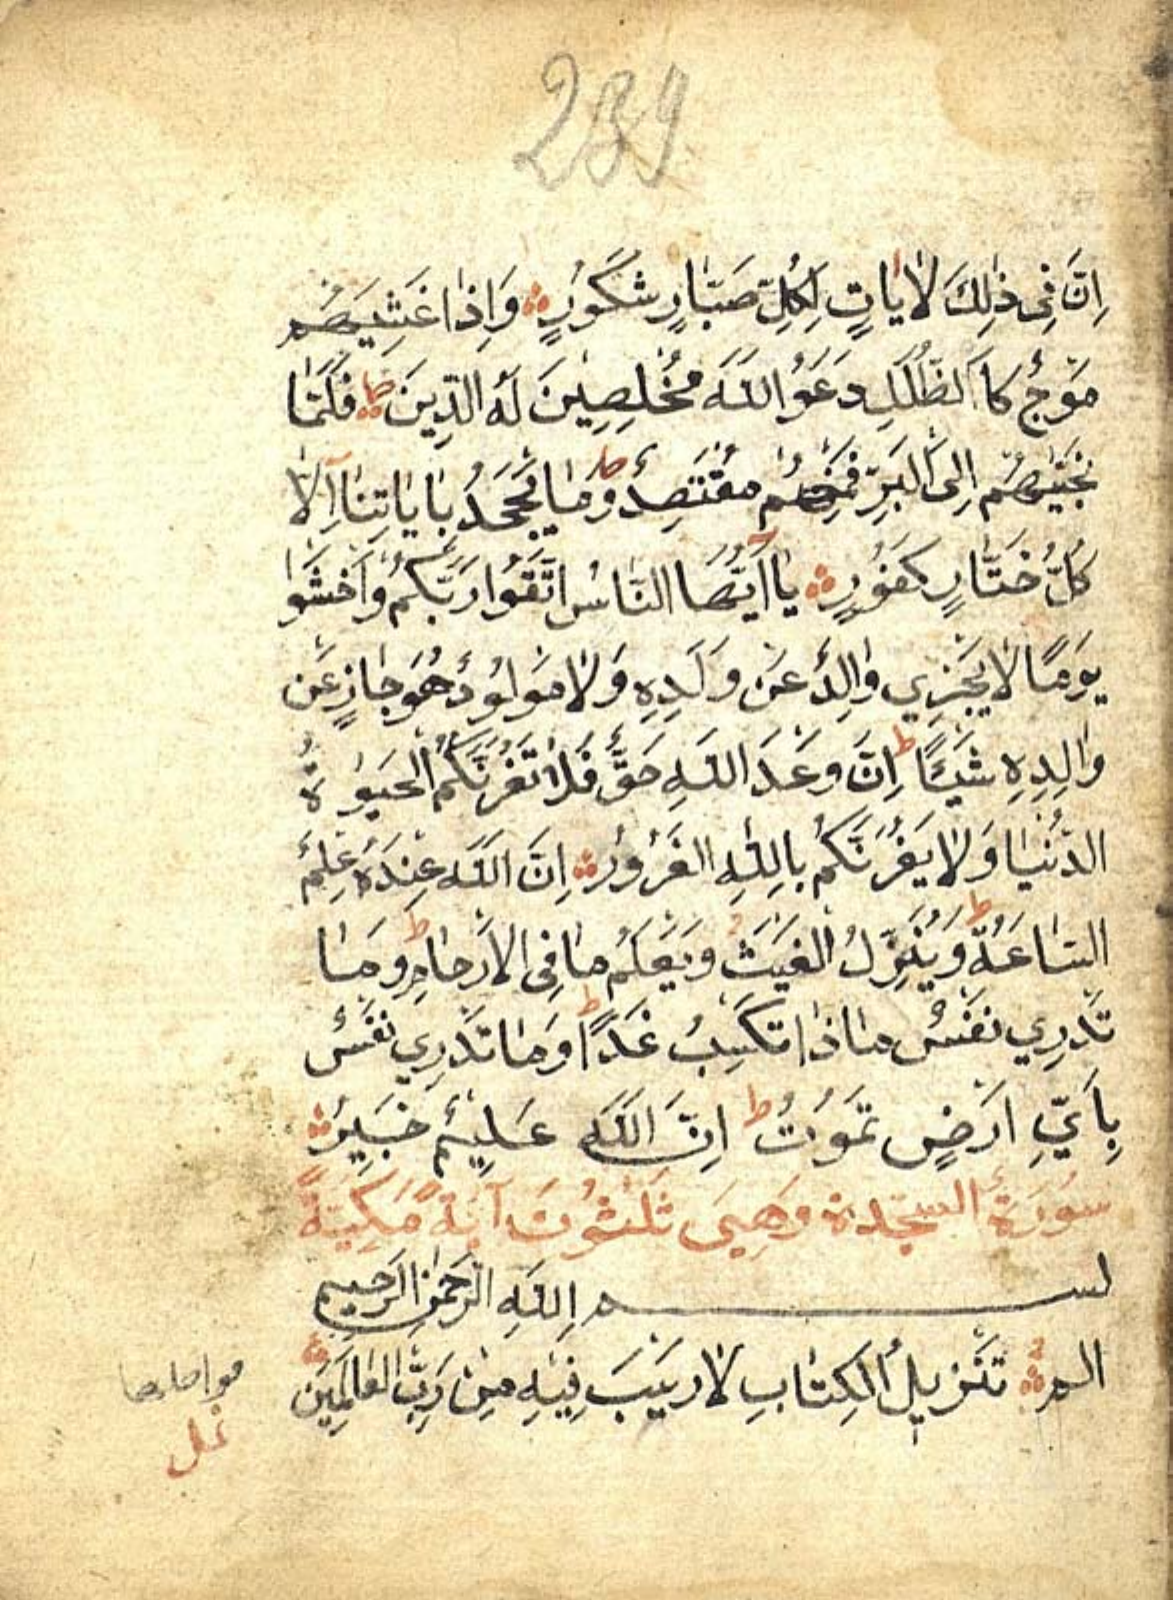 239
اِنَّ فِى ذٰلِكَ لَاٰيَاتٍ لِكُلِّ صَبَّارٍ شَكُورٍ وَاِذَا غَشِيَهُمْ
مَوْجٌ كَا الظُّلَلِ دَعَوُا اللّٰهَ مُخْلِصِينَ لَهُ الدِّينَ فَلَمَّا
نَجَّيٰهُمْ اِلَى الْبَرِّ فَمِنْهُمْ مُقْتَصِدٌ وَمَا يَجْحَدُ بِاٰيَاتِنَا اِلَّا
كُلُّ خَتَّارٍ كَفُورٍ يَا اَيُّهَا النَّاسُ اتَّقُوا رَبَّكُمْ وَاخْشَوْا
يَوْمًا لَا يَجْزِي وَالِدٌ عَنْ وَلَدِهِ وَلَا مَوْلُودٌ هُوَ جَازٍ عَنْ
وَالِدِهِ شَيْئًا اِنَّ وَعْدَ اللّٰهِ حَقٌّ فَلَا تَغُرَّنَّكُمُ الْحَيٰوةُ
الدُّنْيَا وَلَا يَغُرَّنَّكُمْ بِاللّٰهِ الْغَرُورُ اِنَّ اللّٰهَ عِنْدَهُ عِلْمُ
السَّاعَةِ وَيُنَزِّلُ الْغَيْثَ وَيَعْلَمُ مَا فِى الْاَرْحَامِ وَمَا
تَدْرِي نَفْسٌ مَاذَا تَكْسِبُ غَدًا وَمَا تَدْرِي نَفْسٌ
بِاَيِّ اَرْضٍ تَمُوتُ اِنَّ اللّٰهَ عَلِيمٌ خَبِيرٌ
سُورَةُ السجدة وَهِىَ ثَلٰثُونَ اٰيَةً مَكِّيَّةً
بسم اللّٰهِ الرَّحْمٰنِ الرَّحِيمِ
الم تَنْزِيلُ الْكِتَابِ لَا رَيْبَ فِيهِ مِنْ رَبِّ الْعَالَمِينَ